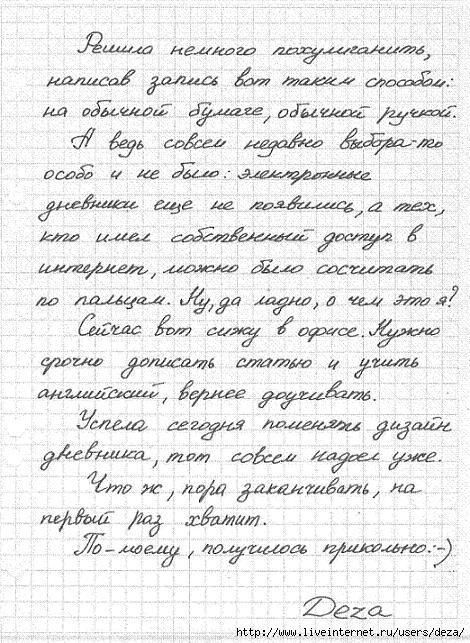 Решила немного похулиганить,
написав запись вот таким способом:
на обычной бумаге, обычной ручкой.
А ведь совсем недавно выбора-то
особо и не было: электронные
дневники еще не появились, а тех,
кто имел собственный доступ в
интернет, можно было сосчитать
по пальцам. Ну, да ладно, о чем это я?
Сейчас вот сижу в офисе. Нужно
срочно дописать статью и учить
английский, вернее доучивать.
Успела сегодня поменять дизайн
дневника, тот совсем надоел уже.
Что ж, пора заканчивать, на
первый раз хватит.
По-моему, получилось прикольно:-)
Deza
http://www.liveinternet.ru/users/deza/